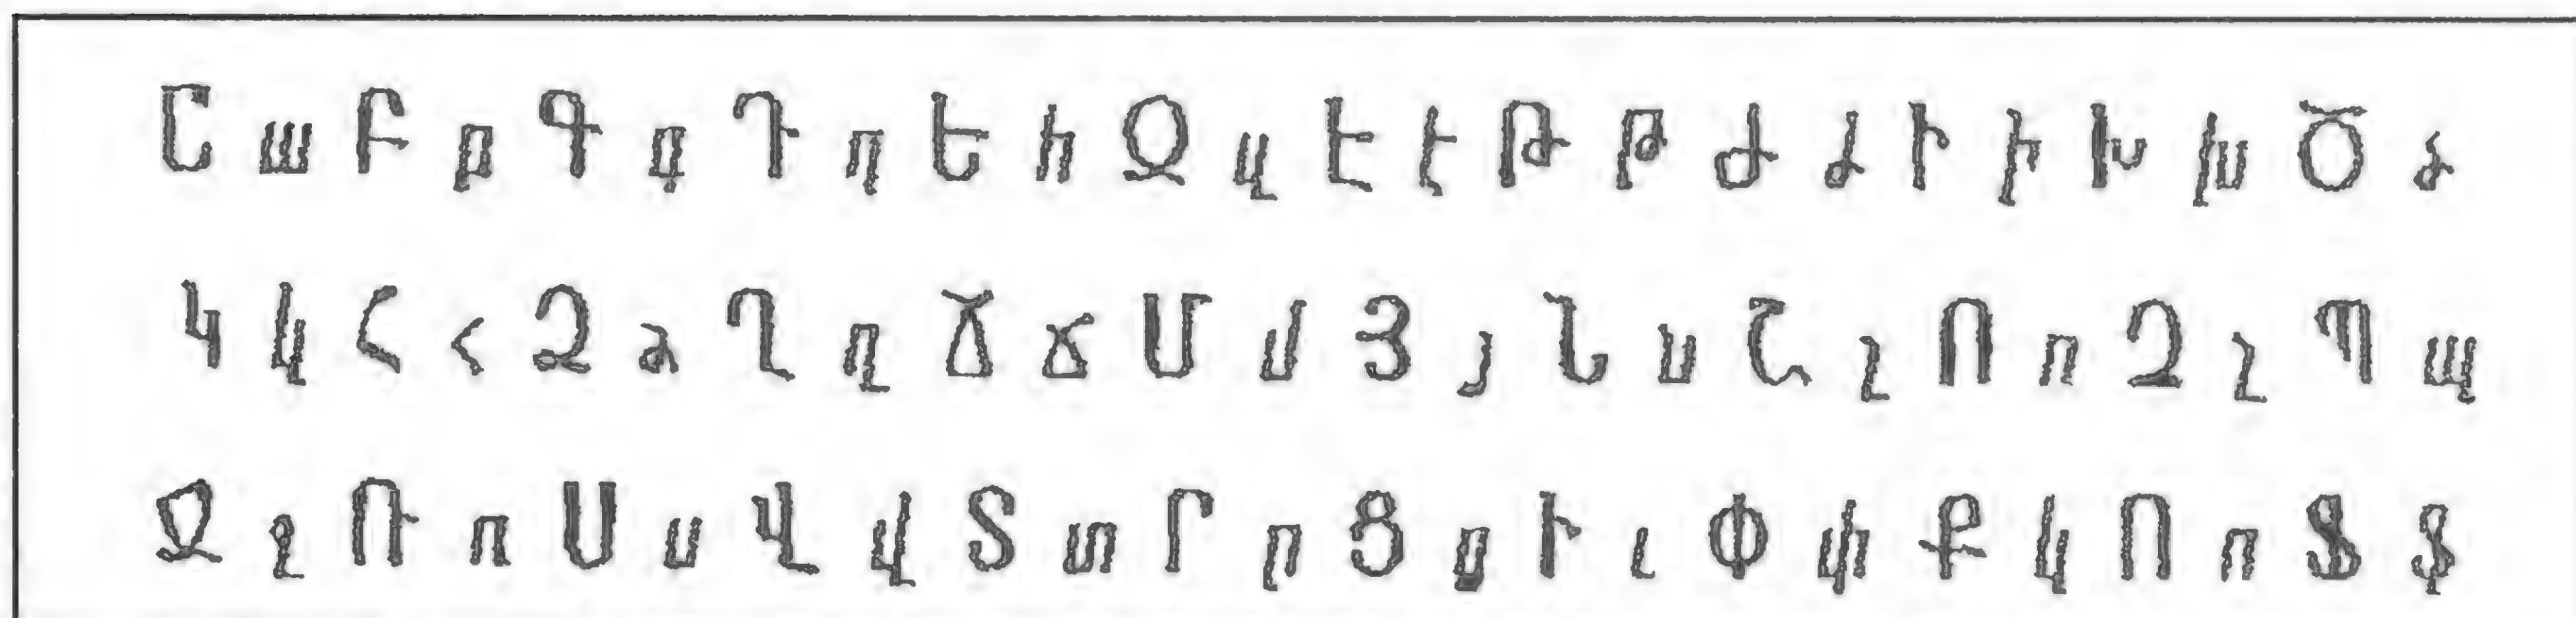 Ա ա Բ բ Գ գ Դ դ Ե ե Զ զ Է է Թ թ Ժ ժ Ի ի Խ խ Ծ ծ
Կ կ Հ հ Ձ ձ Ղ ղ Ճ ճ Մ մ Յ յ Ն ն Շ շ Ո ո Չ չ Պ պ
Ջ ջ Ռ ռ Ս ս Վ վ Տ տ Ր ր Ց ց Ւ ւ Փ փ Ք ք Ո ո Ֆ ֆ